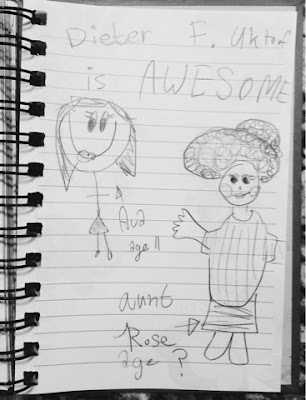 Dieter F. Uktof
is AWESOME
Ava
age 11
aunt
Rose
age ?